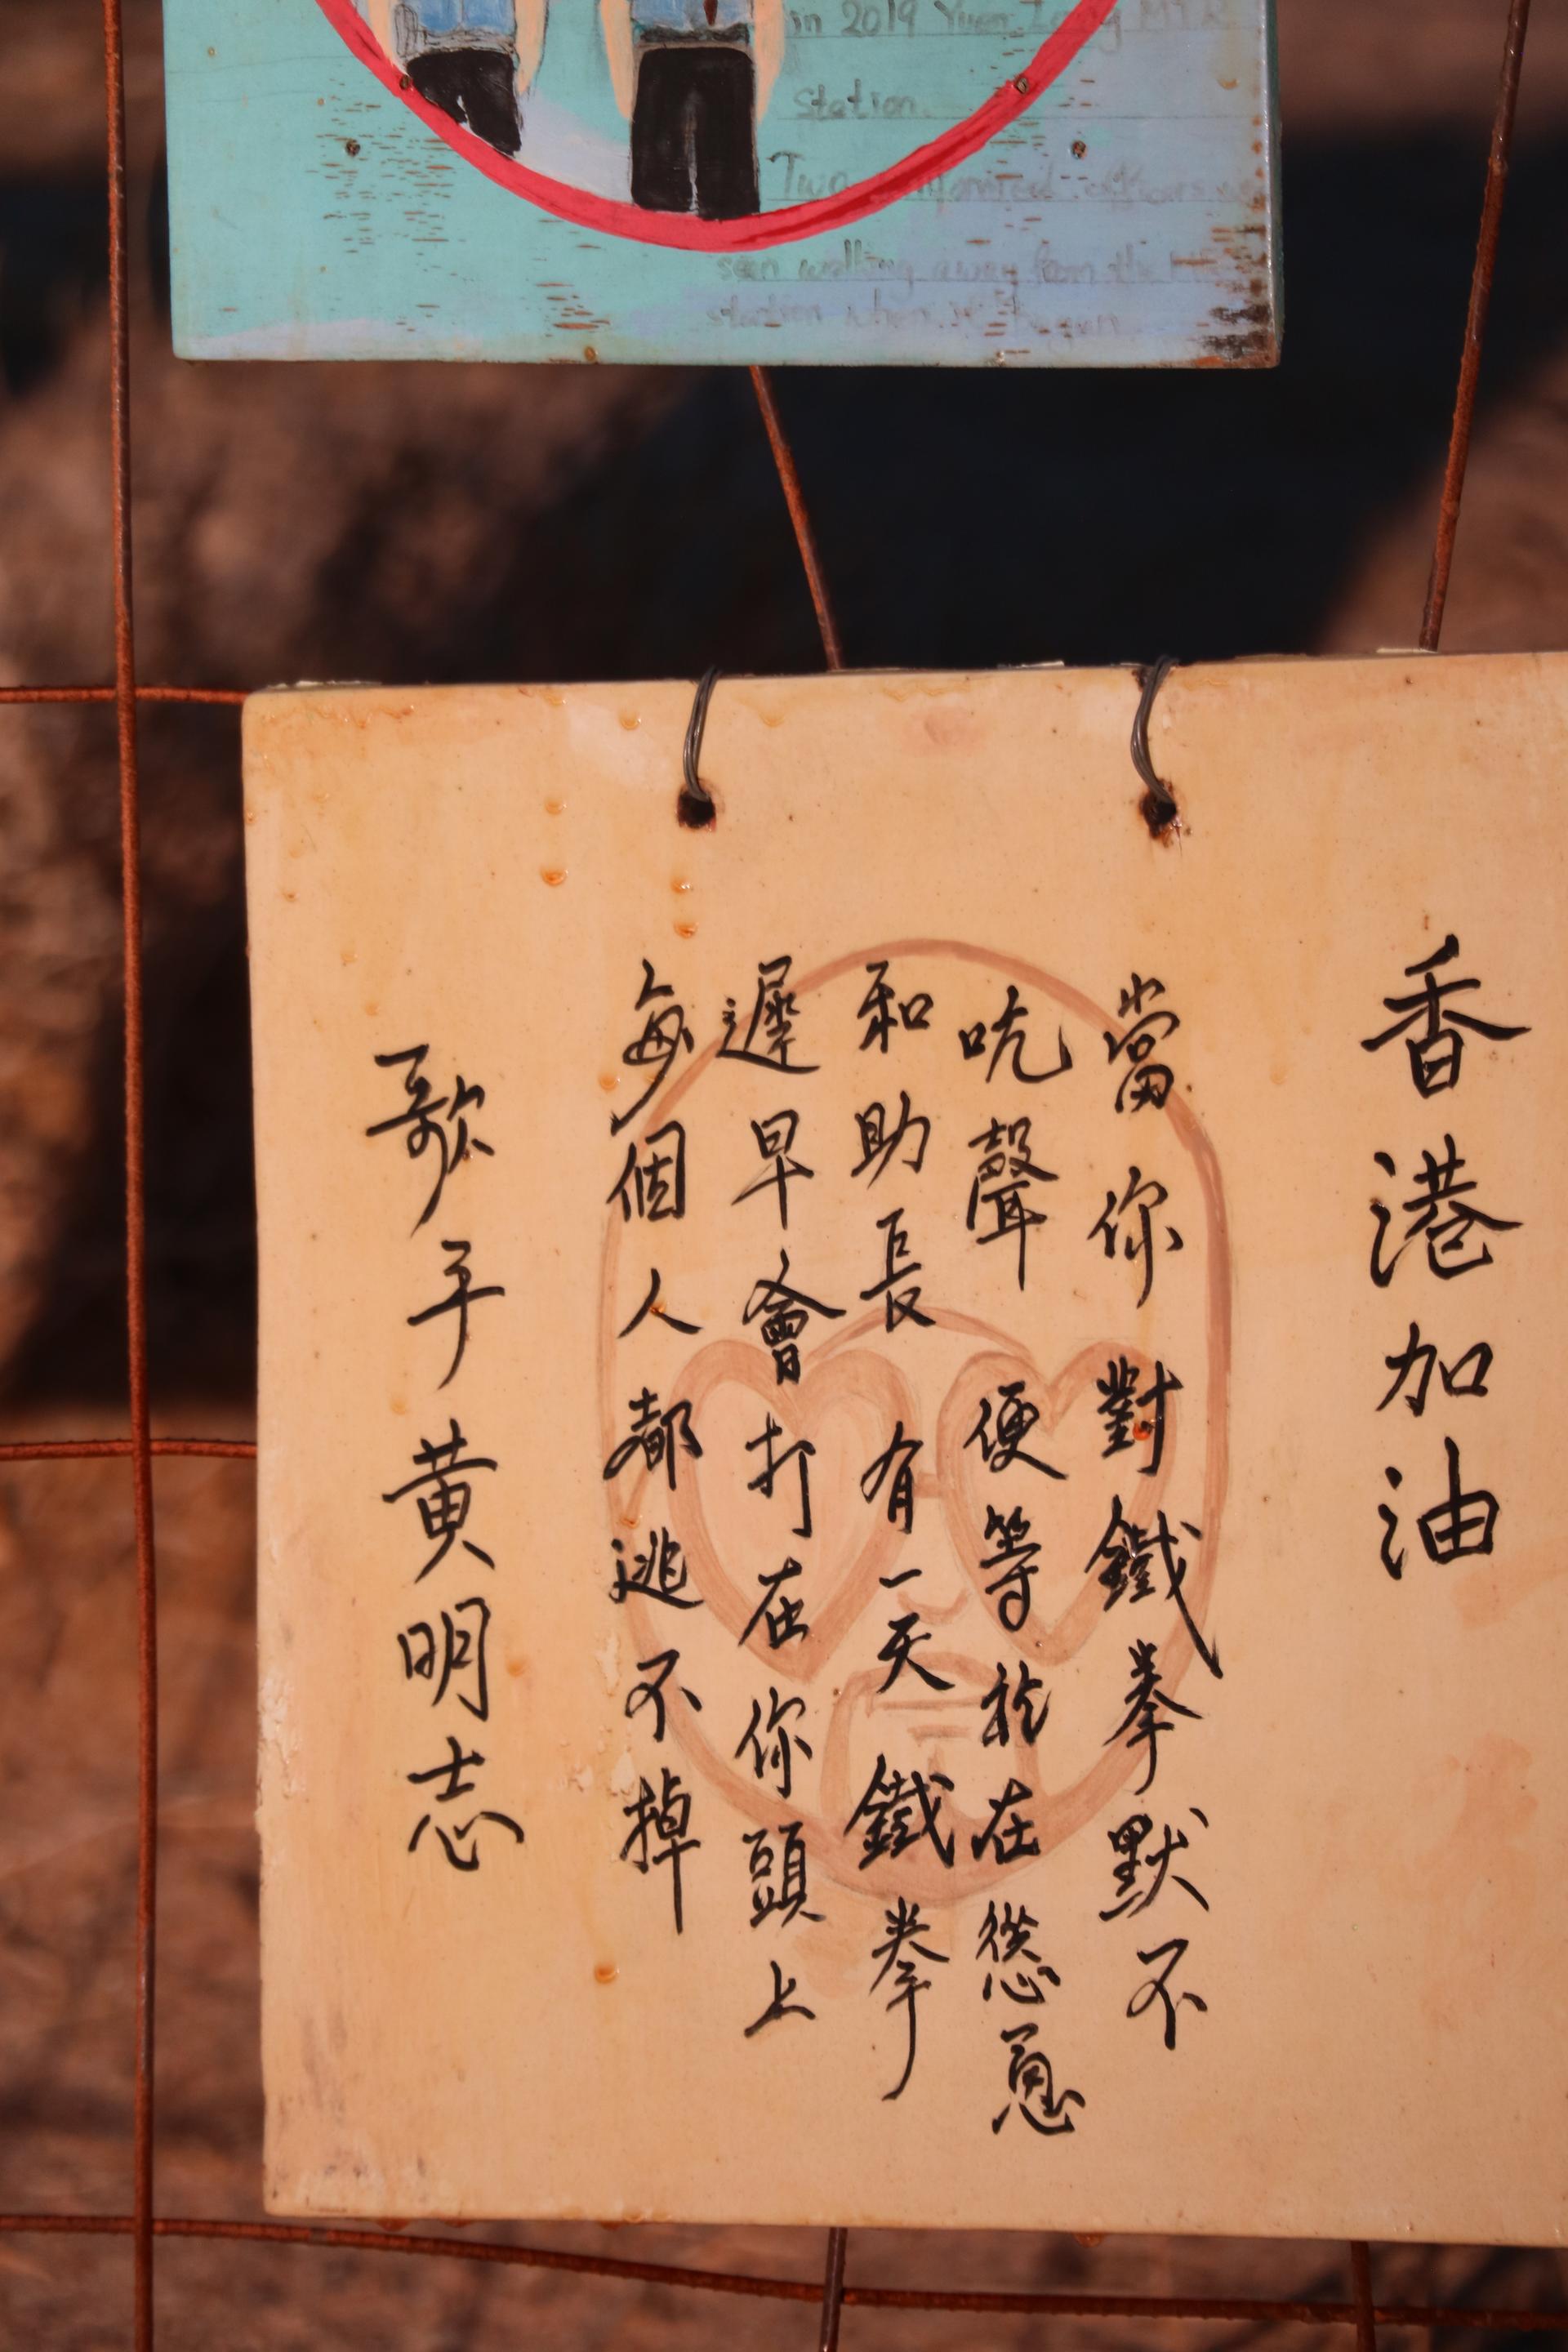 in 2019 Yuen Long MTR
Station.
Two uniformed officers
seen walking away from the
station when it began
香港加油
當你對鐵拳默不
吭聲 便等於在慫恿
和助長 有一天 鐵拳
遲早會打在你頭上
每個人都逃不掉
歌手 黃明志